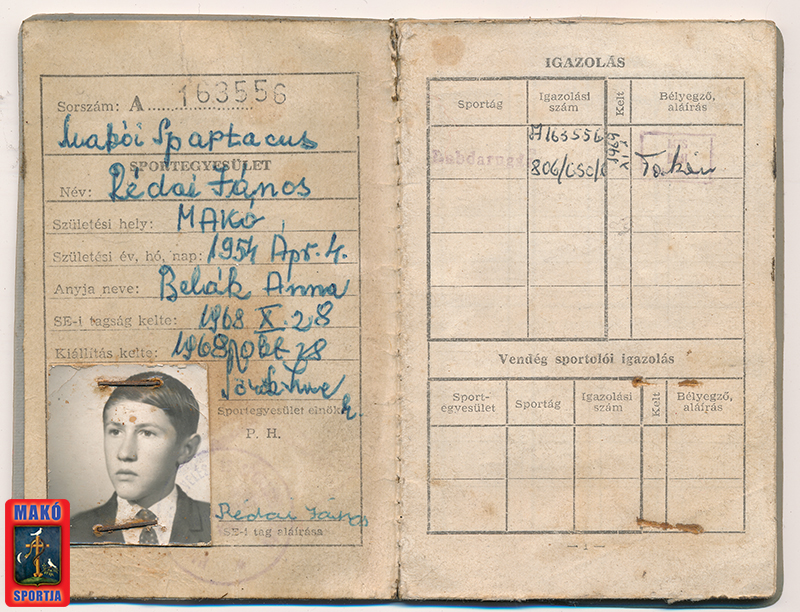 Sorszám: A 163556
Makói Spartacus
SPORTEGYESÜLET
Név: Rédai János
Születési hely: MAKÓ
Születési év, hó, nap: 1954 Ápr. 4.
Anyja neve: Belák Anna
SE-i tagság kelte: 1968 X. 28
Kiállítás kelte: 1968 Okt 28
Sportegyesület elnöke
P. H.
Rédai János
SE-i tag aláírása
MAKÓ
SPORTJA
IGAZOLÁS
Sportág
Igazolási szám
Kelt
Bélyegző, aláírás
Labdarugó
A163556
1969 XII
Vendég sportolói igazolás
Sport-egyesület
Sportág
Igazolási szám
Kelt
Bélyegző, aláírás